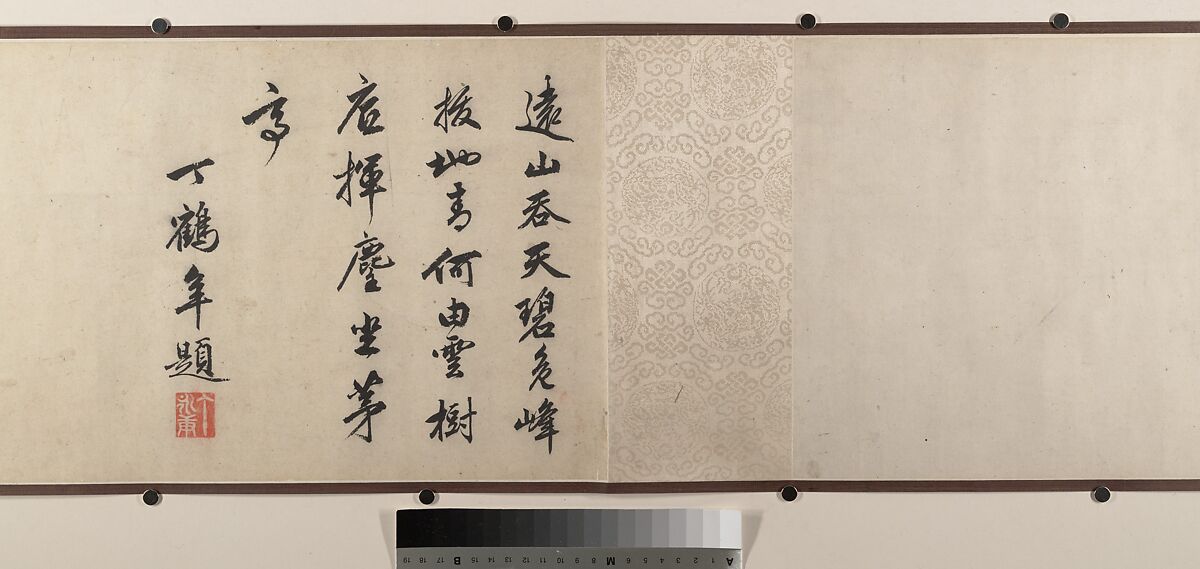 遠山吞天碧危峰
拔地青何由雲樹
底揮麈坐茅
亭
丁鶴年題
丁永庚
A 1 2 3 4 5 6 M 8 9 10 11 12 13 14 15 B 17 18 19